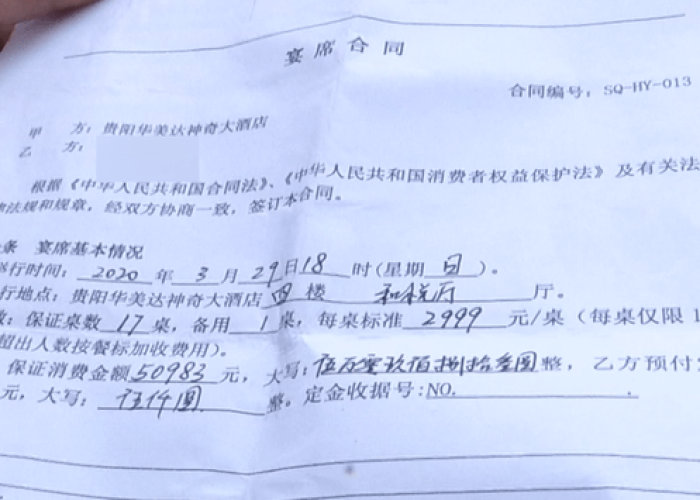 宴席合同
合同编号：SQ-HY-013
甲 方：贵阳华美达神奇大酒店
乙 方：
根据《中华人民共和国合同法》、《中华人民共和国消费者权益保护法》及有关法
律法规和规章，经双方协商一致，签订本合同。
条 宴席基本情况
举行时间：2020 年 3 月 29 日 18 时（星期 日）。
行地点：贵阳华美达神奇大酒店 四 楼 和悦厅 厅。
数：保证桌数 17 桌，备用 1 桌，每桌标准 2999 元/桌（每桌仅限 1
超出人数按餐标加收费用）。
保证消费金额 50983 元，大写：伍万零玖佰捌拾叁圆 整，乙方预付
元，大写：伍仟圆 整。定金收据号：NO.